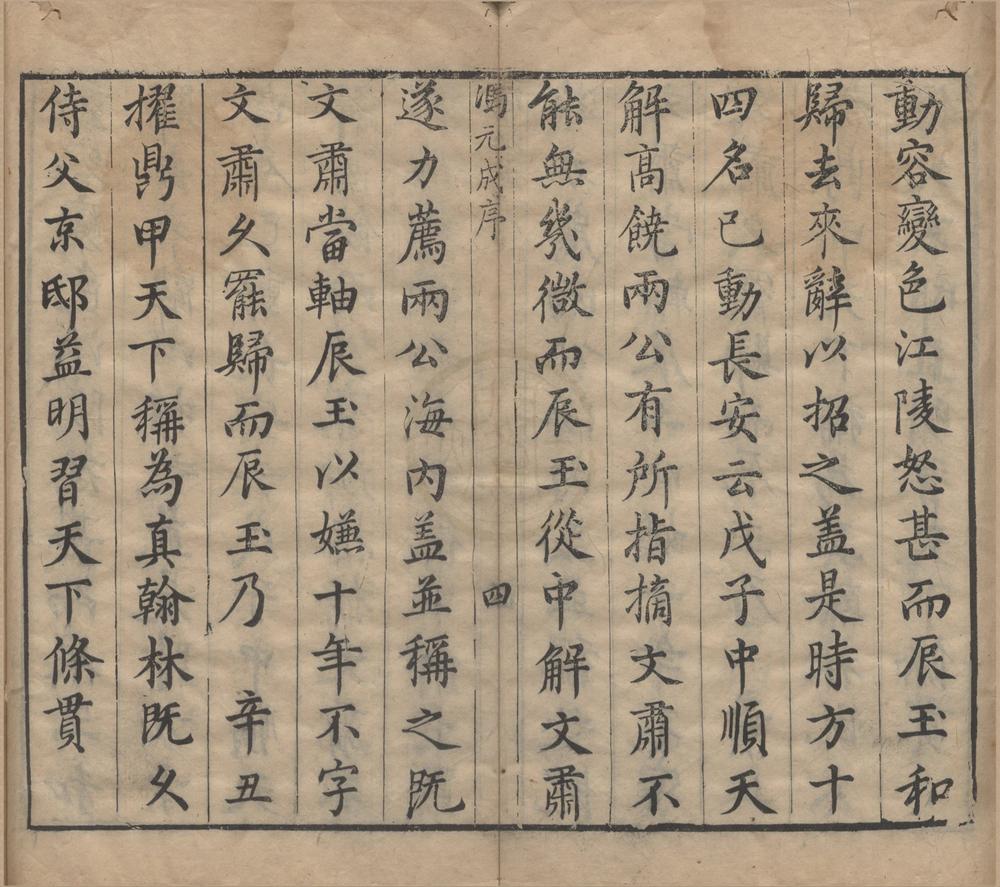 動容變色江陵怒甚而辰玉和
歸去來辭以招之盖是時方十
四名已動長安云戊子中順天
解高饒兩公有所指摘文肅不
能無幾微而辰玉從中解文肅
馮元成序 四
遂力薦兩公海内盖並稱之既
文肅當軸辰玉以嫌十年不字
文肅久罷歸而辰玉乃 辛丑
擢鼎甲天下稱為真翰林既久
侍父京邸益明習天下條貫